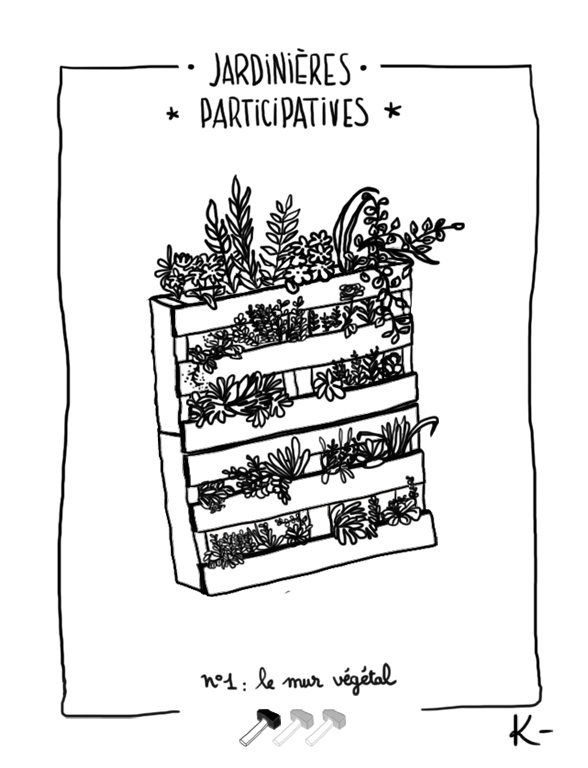 • JARDINIÈRES •
* PARTICIPATIVES *
n°1 : le mur végétal
K-